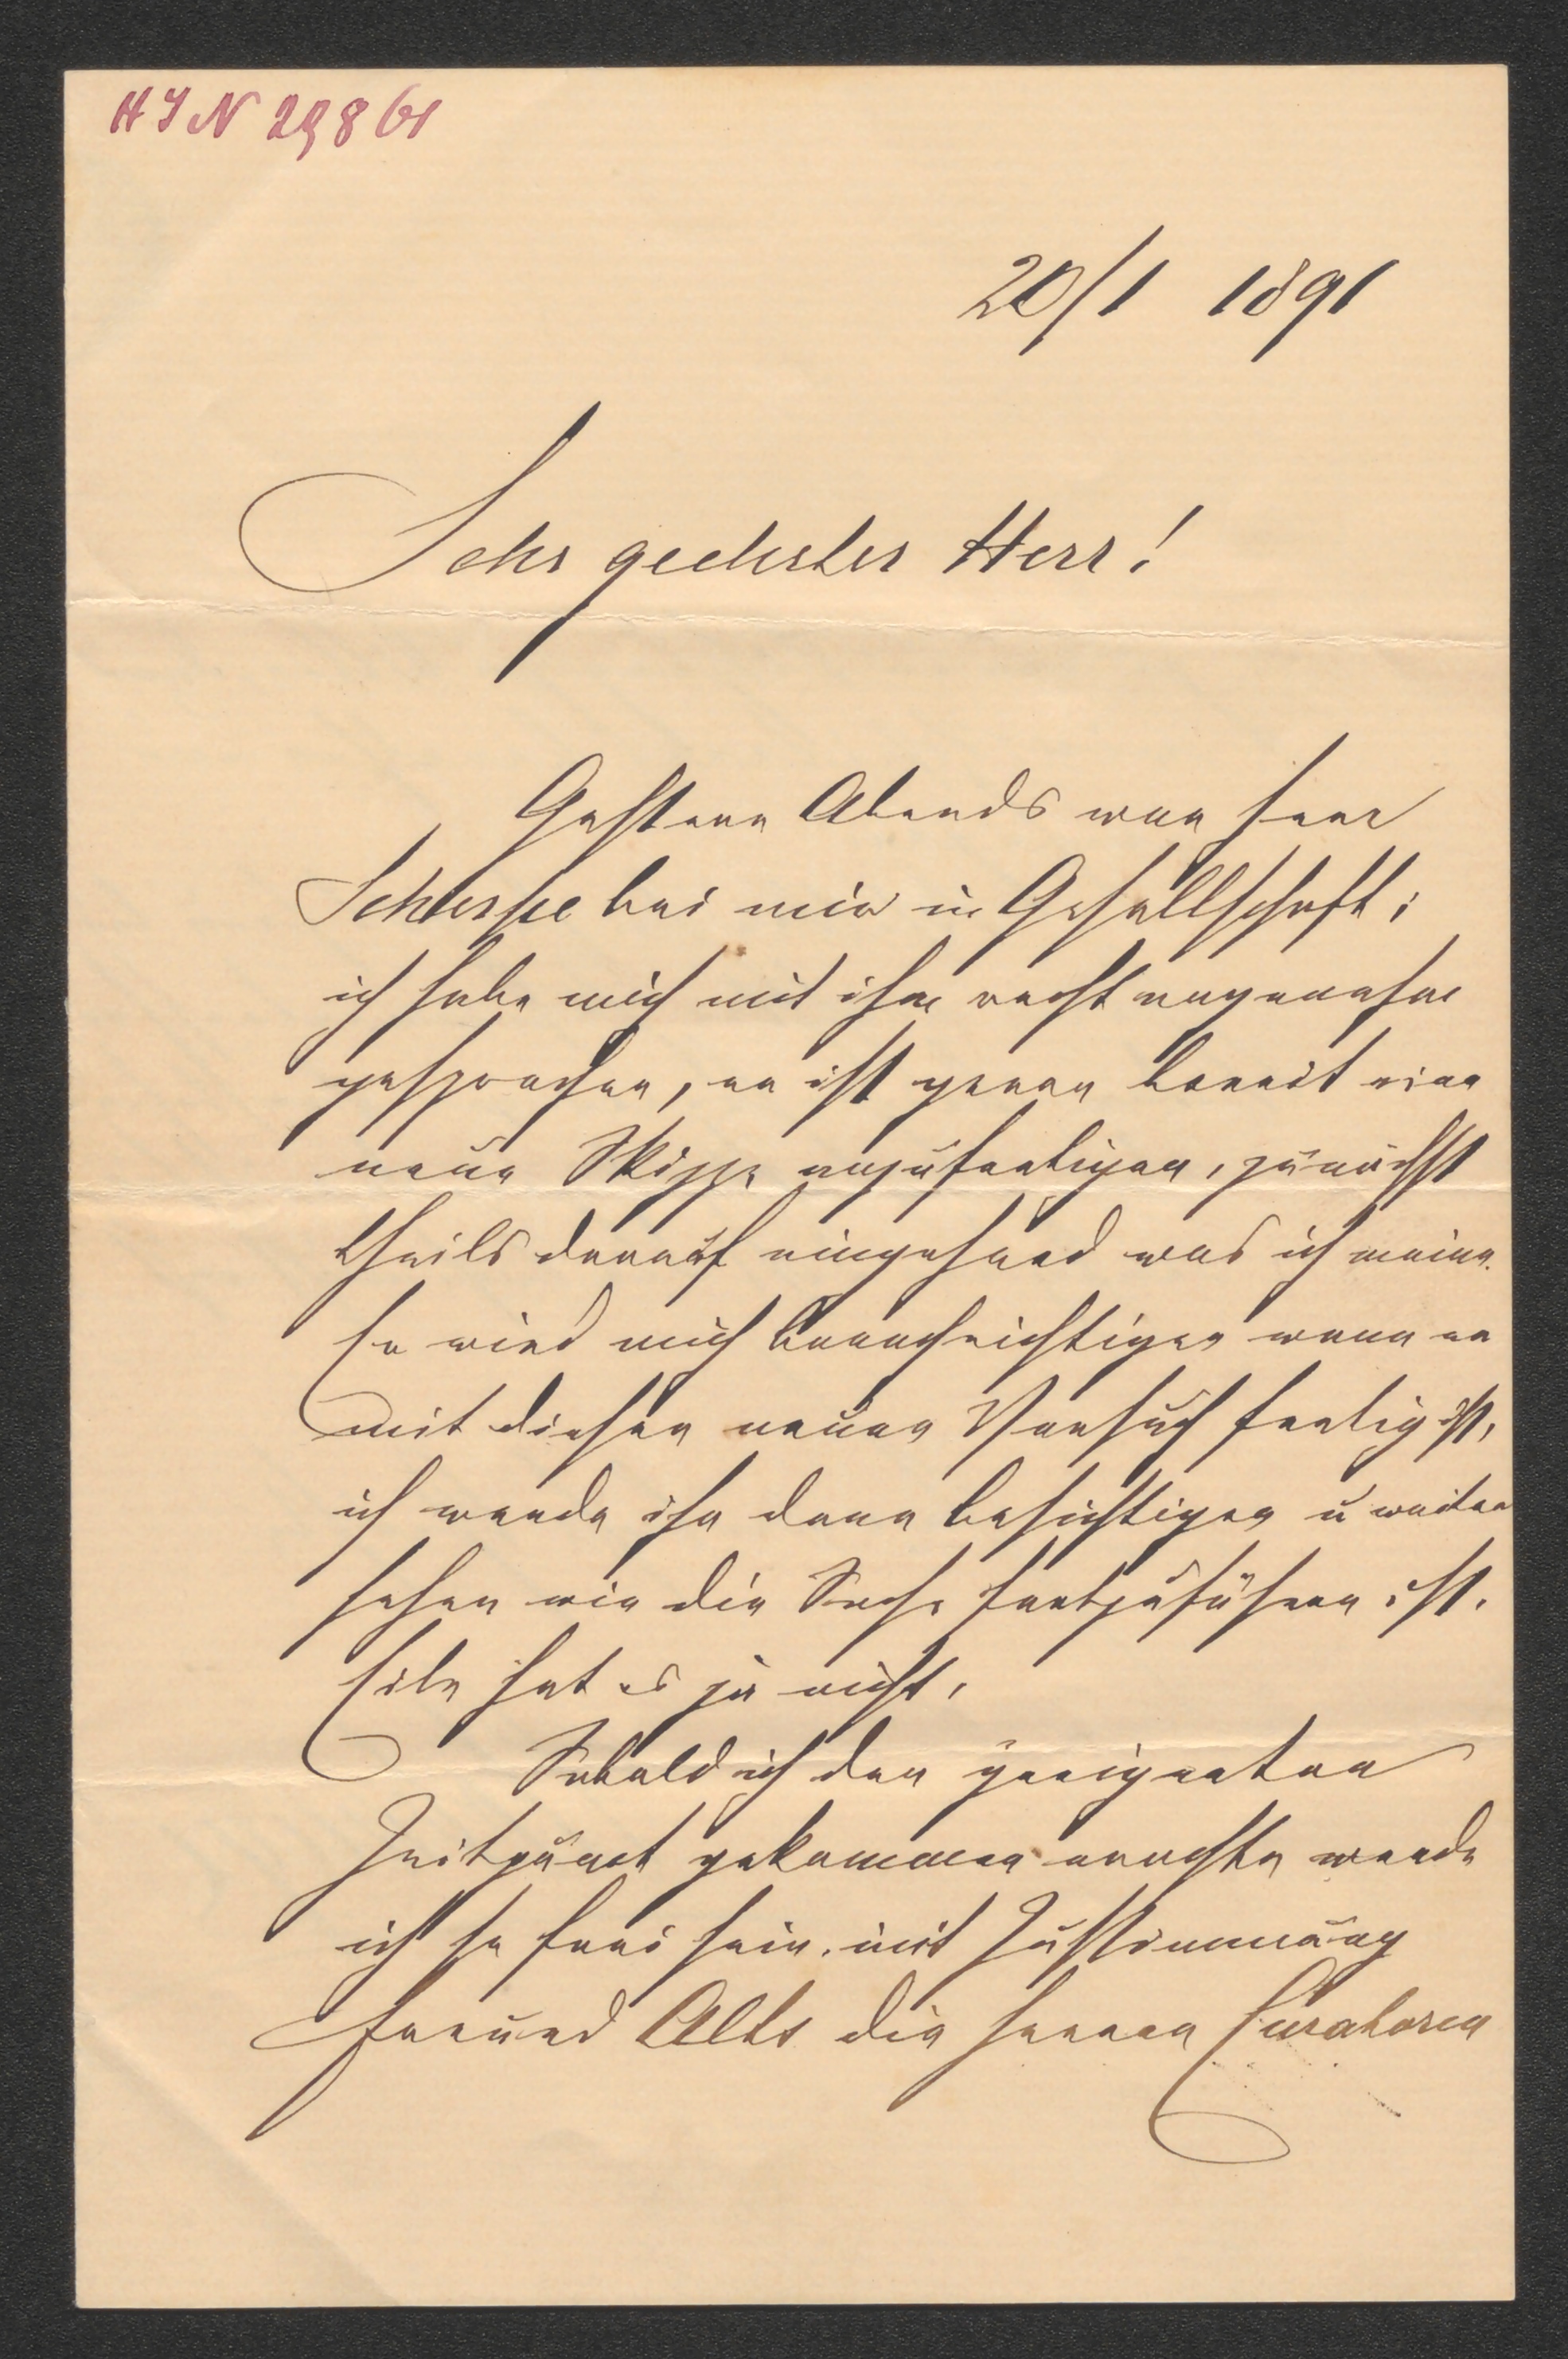 HIN 29861
20/1 1891
Sehr geehrter Herr!
Gestern Abends war Herr
Scherpe bei mir in Gesellschaft;
ich habe mich mit ihm recht angenehm
gesprochen, er ist gerne bereit eine
neue Skizze anzufertigen, zunächst
theils darauf eingehend was ich meine.
Er wird mich benachrichtigen wenn er
mit diesen neuen Versuch fertig ist,
ich werde ihn dann besichtigen u weiter
sehen wie die Sache fortzuführen ist.
Eile hat es ja nicht.
Sobald ich den geeigneten
Zeitpunct gekommen erachte werde
ich so frei sein, mit Zustimmung
Freund Alts die Herren Curatoren